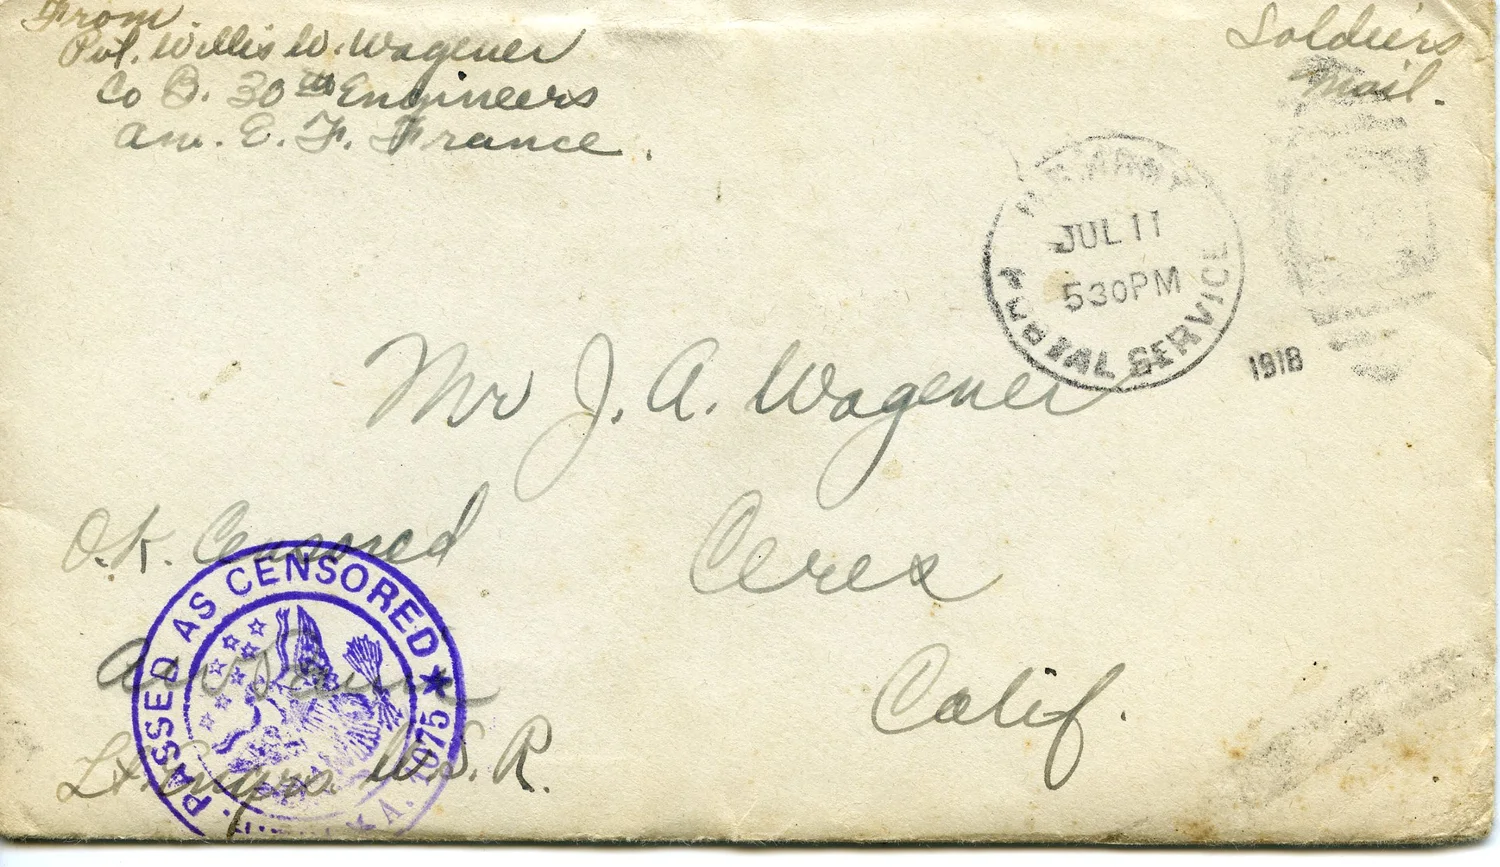 From
Pvt. Willis W. Wagener
Co B. 30th Engineers
Am. E. F. France.
Soldiers
Mail.
JUL 11
530PM
POSTAL SERVICE
1918
Mr J. A. Wagener
Ceres
Calif.
O.K. Censored
Lt. Engrs. U.S.R.
PASSED AS CENSORED ★
A. 1075